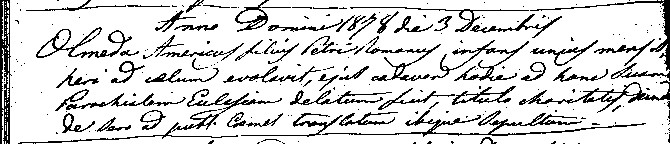 Anno Domini 1878 die 3 Decembris
Olmeda Americus filius Petri Romanus, infans unius mensis
heri ad cælum evolavit, ejus cadaver hodie ad hanc suam
Parochialem Ecclesiam delatum fuit, titulo charitatis,
de sero ad publ. Cœmet translatum ibique sepultum.